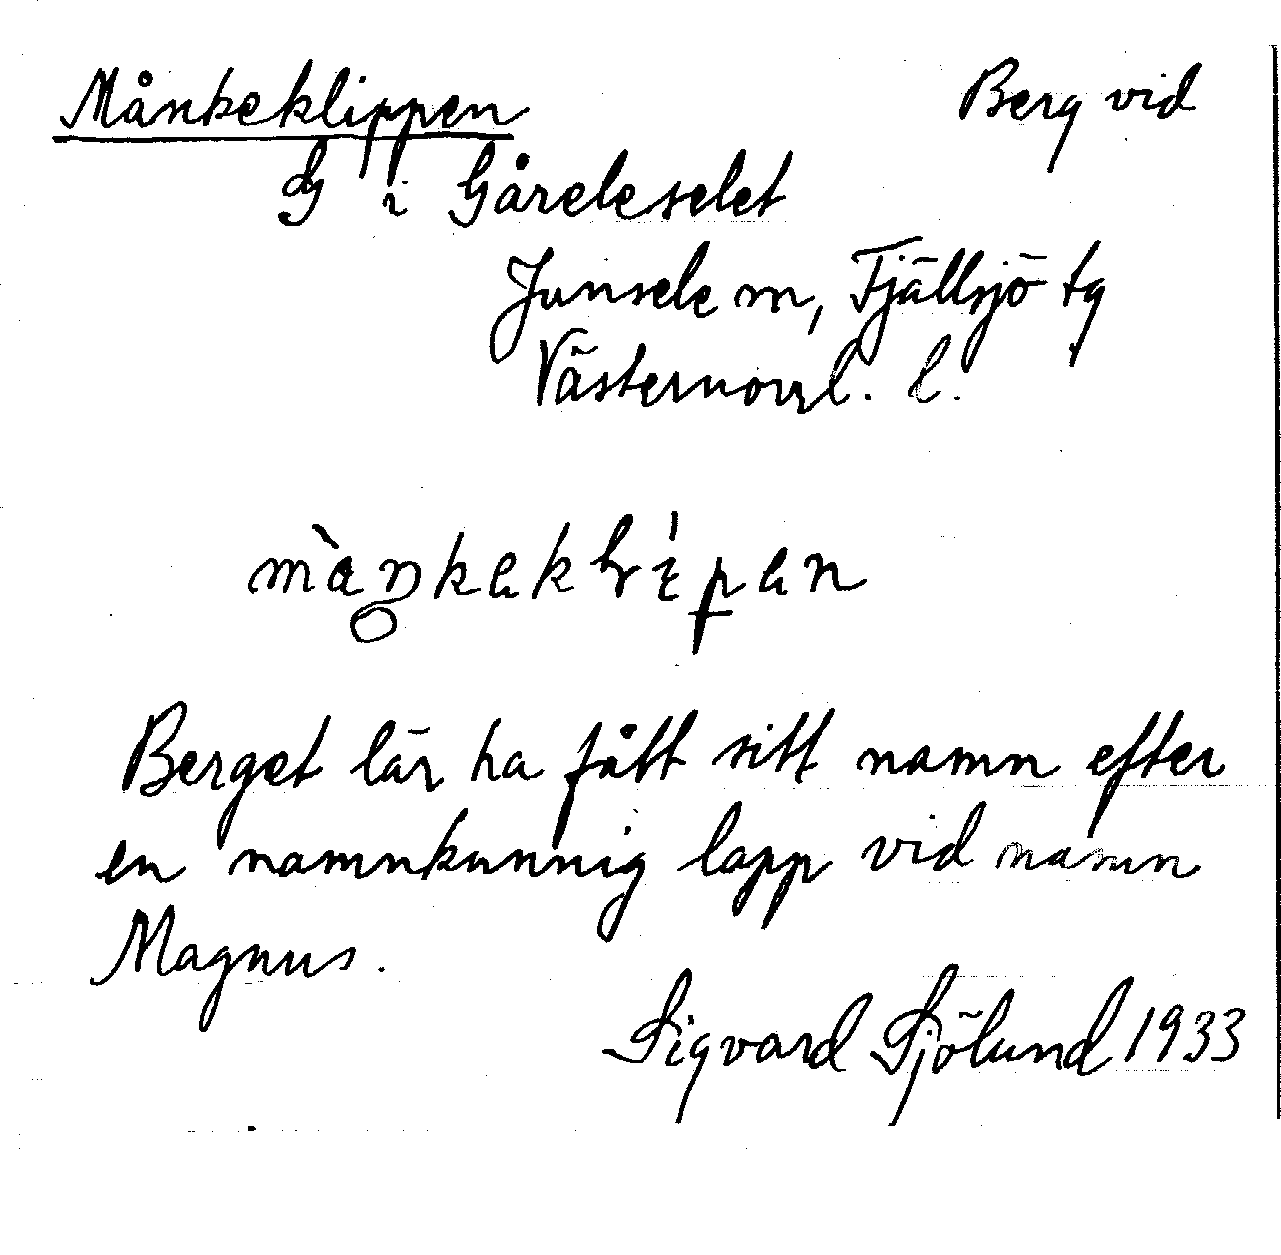 Månkeklippen Berg vid
i Gåreleselet
Junsele m, Fjällsjö tg
Västernorrl. l.
Berget lär ha fått sitt namn efter
en namnkunnig lapp vid namn
Magnus.
Sigvard Sjölund 1933